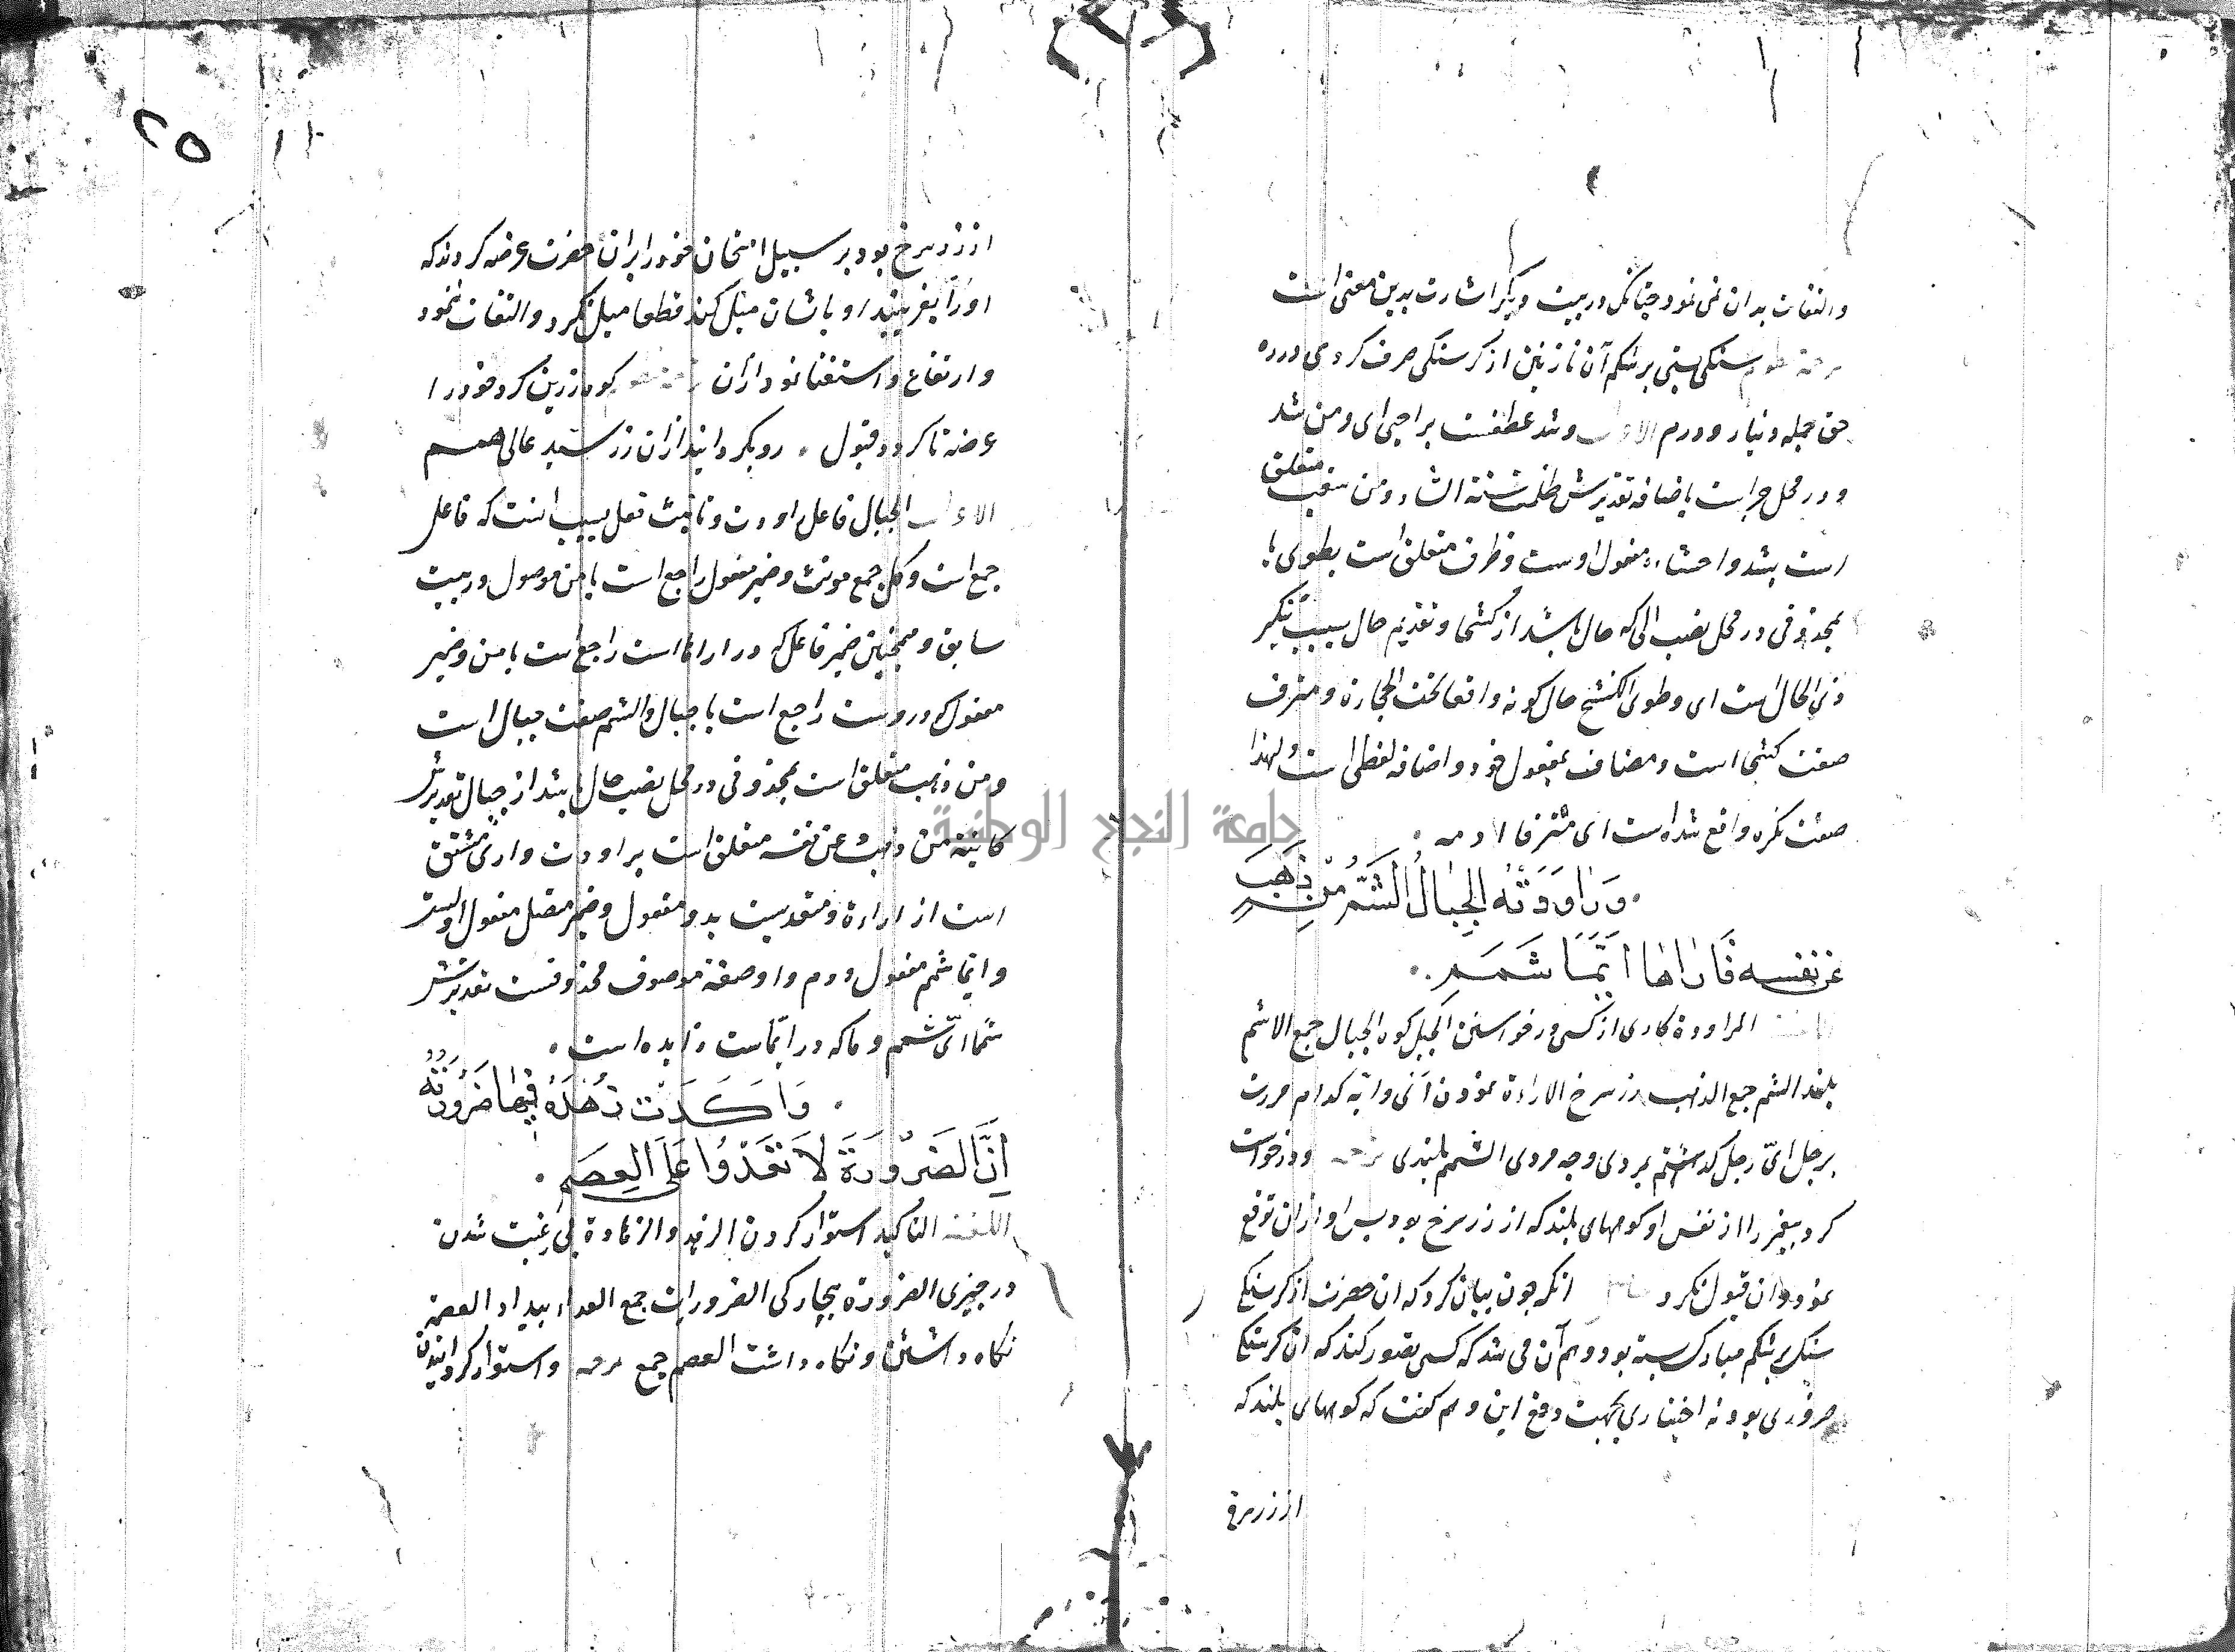 والتفات بدان نمی نمود چنانکه در بیت دیگر اشارت بدین معنی است
سنگی بستی بر شکم آن نازنین از گرسنگی صرف کردی در ره
حق جمله دینار و درم الاعراب وشد عطفست بر احیی ای ومن شد
و در محل جر است باضافه تقدیرش ظلمت سنة الشاد ومن سغب متعلق
است بشد واحشاءه مفعول اوست وظرف متعلق است بطوی یا
بمحذوفی در محل نصب الی که حال باشد از کشحا وتقدیم حال بسبب تنکیر
ذی الحال است ای وطوی الکشح حال کونه واقعا تحت الحجارة ومترف
صفت کشحا است ومضاف بمفعول خود واضافه لفظی است ولهذا
صفت نکره واقع شده است ای مترفا ادمه
وَرَاوَدَتْهُ الجِبَالُ الشُّمُّ مِنْ ذَهَبٍ
عن نفسه فَأَرَاهَا أَيَّمَا شَمَمِ
المراودة کاری از کسی درخواستن الجبل کوه الجبال جمع الاشم
بلند الشم جمع الذهب زر سرخ الاراءة نمودن ای وایة کدام مررت
برجل ای رجل گذشتم بمردی وچه مردی الشمم بلندی ترجمه ودرخواست
کرد پیغمبر را از نفس او کوههای بلند که از زر سرخ بود پس او ازان ترفع
نمود وان قبول نکرد انکه چون بیان کرد که ان حضرت از گرسنگی
سنگ بر شکم مبارک بسته بود وهم آن می شد که کسی تصور کند که ان گرسنگی
ضروری بود نه اختیاری بجهت دفع این وهم گفت که کوههای بلند که
از زر سرخ
٢٥
از زر سرخ بود بر سبیل امتحان خود را بران حضرت عرضه کردند که
او را بفریبند او باشان میل کند قطعا میل نکرد والتفات ننمود
وارتفاع واستغنا نمود ازان کوه زرین کرد خود را
عرضه تا کردد قبول روبگردانید ازان زر سید عالی همم
الاعراب الجبال فاعل راودت وتانیث فعل بسبب انست که فاعل
جمع است وکل جمع مونث وضمیر مفعول راجع است با من موصول در بیت
سابق وهمچنین ضمیر فاعل که در اراها است راجع است با من وضمیر
مفعول که دروست راجع است با جبال والشم صفت جبال است
ومن ذهب متعلق است بمحذوفی در محل نصب حال باشد از جبال تقدیرش
کاینة من ذهب وعن نفسه متعلق است براودت واری مشتق
است از اراءة ومتعدیست بدو مفعول وضمیر متصل مفعول اولست
وایما شمم مفعول دوم واو صفة موصوف محذوفست تقدیرش
شمما ای شمم وما که در ایماست زایده است
وَاَكَّدَتْ زُهْدَهُ فِيهَا ضَرُورَتُهُ
إِنَّ الضَّرُورَةَ لَا تَعْدُوا عَلَى العِصَمِ
اللغة التاکید استوار کردن الزهد والزهادة بی رغبت شدن
در چیزی الضرورة بیچارگی الضرورات جمع العداء بیداد العصمة
نگاه داشتن ونگاه داشت العصم جمع ترجمه واستوار گردانیدن